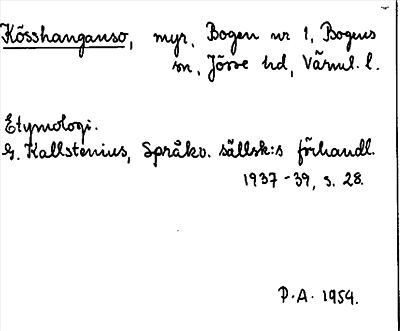 Kösshanganso, myr, Bogen nr 1, Bogens
sn, Jösse hd, Värml. l.
Etymologi.
G. Kallstenius, Språkv. sällsk:s förhandl.
1937-39, s. 28.
P.A. 1954.